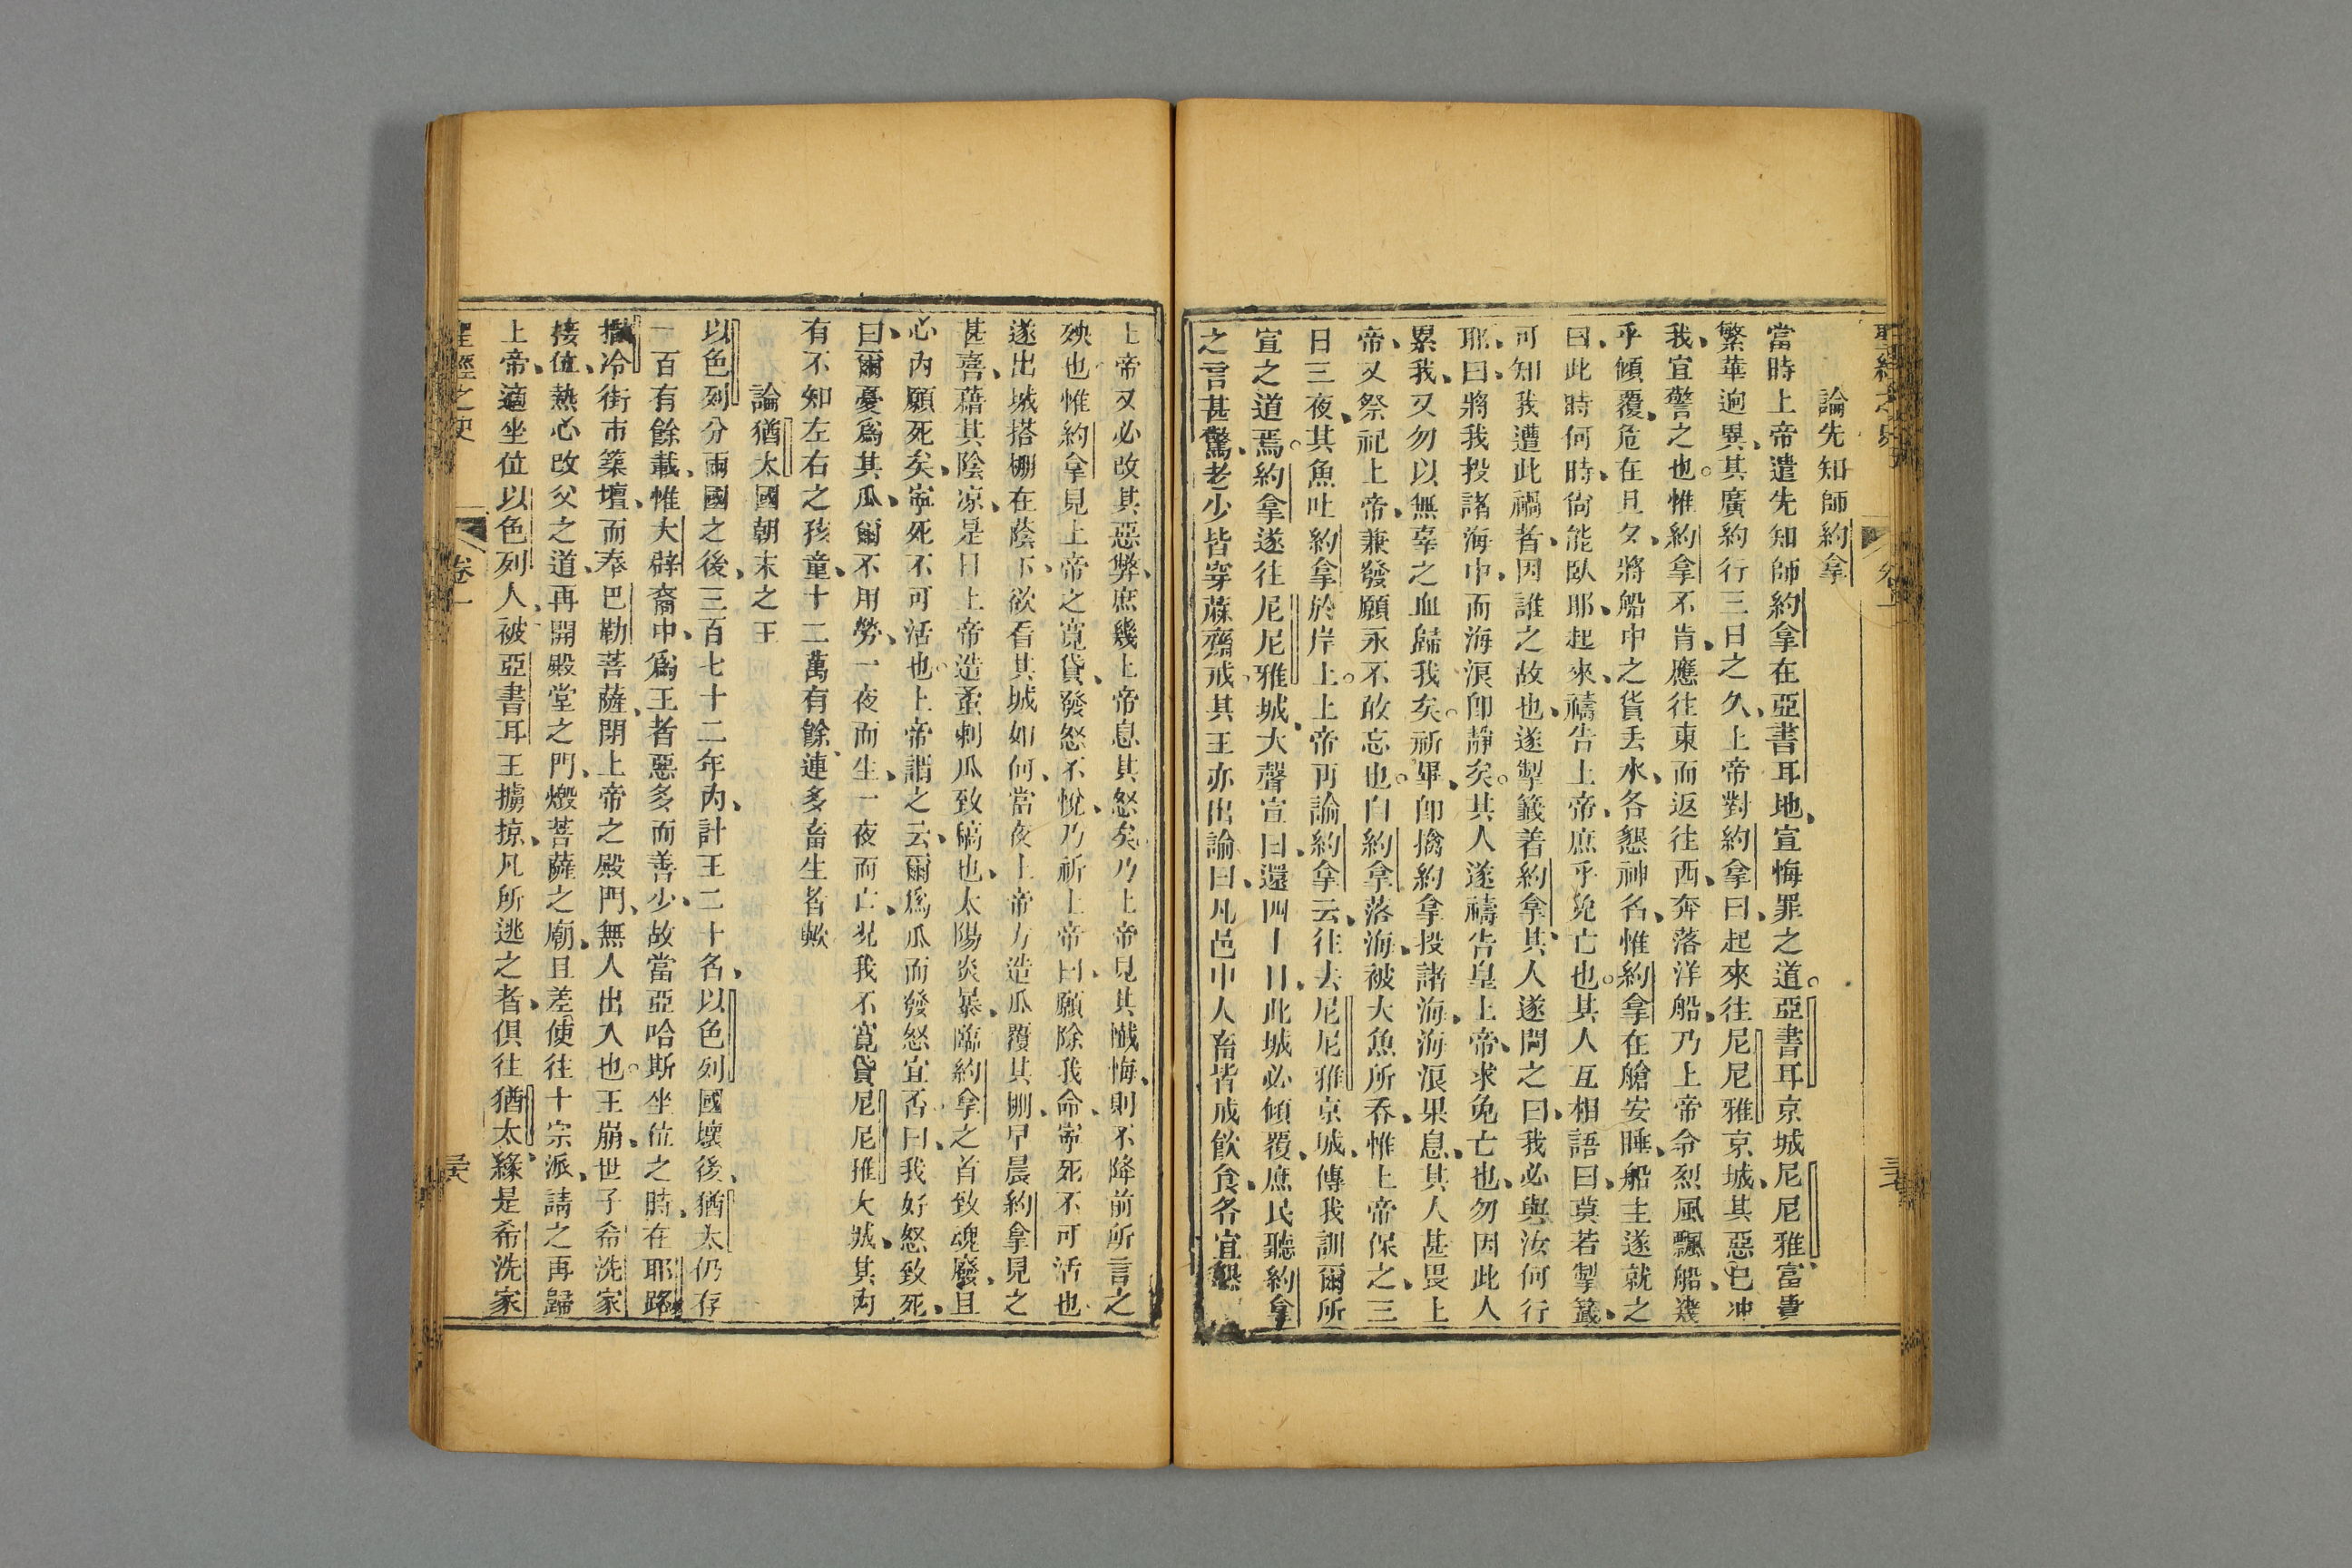 論先知師約拿
當時上帝遣先知師約拿在亞書耳地、宣悔罪之道。亞書耳京城尼尼雅、富貴
繁華逈異、其廣約行三日之久、上帝對約拿曰、起來往尼尼雅京城、其惡已冲
我、宜警之也。惟約拿不肯應往東而返往西、奔落洋船、乃上帝令烈風飄船、幾
乎傾覆、危在旦夕、將船中之貨丟水、各懇神名、惟約拿在艙安睡、船主遂就之
曰、此時何時、尙能臥耶、起來、禱告上帝、庶乎免亡也。其人互相語曰、莫若掣籤、
可知我遭此禍者、因誰之故也、遂掣籤着約拿、其人遂問之曰、我必與汝何行
耶、曰、將我投諸海中、而海浪卽靜矣。其人遂禱告皇上帝、求免亡也、勿因此人
累我、又勿以無辜之血歸我矣。祈畢、卽擒約拿投諸海、海浪果息、其人甚畏上
帝、又祭祀上帝、兼發願永不敢忘也。自約拿落海、被大魚所吞、惟上帝保之、三
日三夜、其魚吐約拿於岸上。上帝再諭約拿云、往去尼尼雅京城、傳我訓爾所
宣之道焉。約拿遂往尼尼雅城、大聲宣曰、還四十日、此城必傾覆、庶民聽約拿
之言甚驚、老少皆穿蔴齋戒。其王亦出諭曰、凡邑中人畜皆戒飮食、各宜懇
上帝又必改其惡弊、庶幾上帝息其怒矣。乃上帝見其懺悔、則不降前所言之
殃也惟約拿見上帝之寬貸、發怒不悅、乃祈上帝曰、願除我命、寧死不可活也
遂出城搭棚在蔭下、欲看其城如何、當夜上帝方造瓜覆其棚、早晨約拿見之
甚喜、藉其陰凉、是日上帝造蚉刺瓜致槁也、太陽炎暴、臨約拿之首致魂廢、且
心內願死矣、寧死不可活也。上帝謂之云、爾爲瓜而發怒宜否、曰、我好怒致死、
曰、爾憂爲其瓜、爾不用勞、一夜而生、一夜而亡、况我不寬貸尼尼雅大城、其內
有不知左右之孩童、十二萬有餘、連多畜生者歟
論猶太國朝末之王
以色列分兩國之後、三百七十二年內、計王二十名、以色列國壞後、猶太仍存
一百有餘載、惟大辟裔中、爲王者惡多而善少、故當亞哈斯坐位之時、在耶路
撒冷街市築壇、而奉巴勒菩薩、閉上帝之殿門、無人出入也。王崩、世子希洗家
接位、熱心改父之道、再開殿堂之門、燬菩薩之廟、且差使往十宗派、請之再歸
上帝、適坐位以色列人、被亞書耳王擄掠、凡所逃之者、俱往猶太、緣是希洗家
聖經之史　卷一